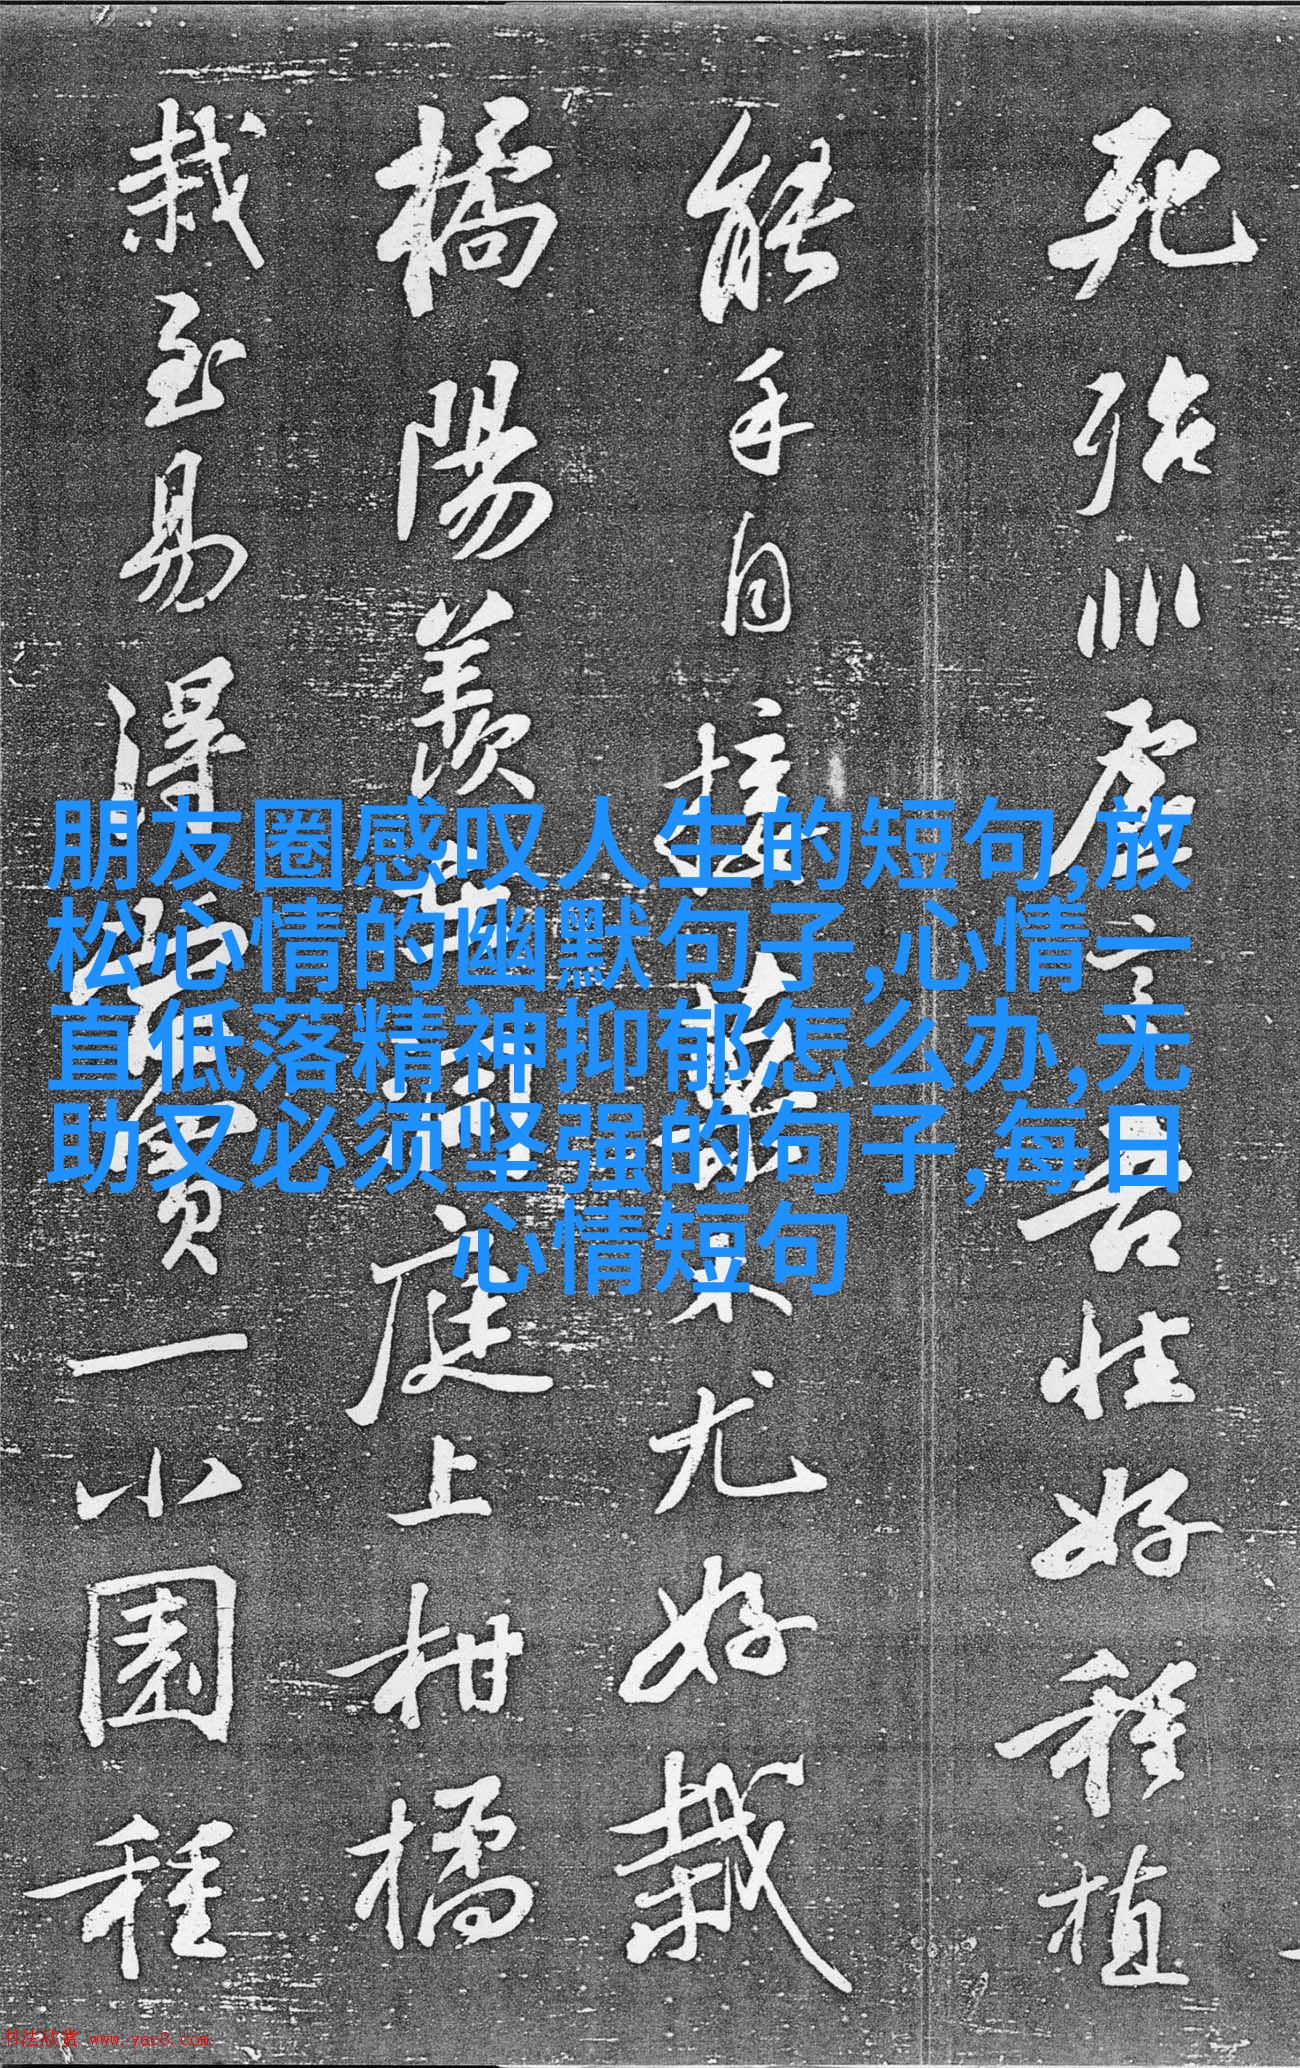 死殆非虛言吾性好種植
能手自接菓木尤好栽
橘陽羨在洞庭上柑橘
栽至易得當買一小園種
朋友圈感叹人生的短句,放
松心情的幽默句子,心情一
直低落精神抑郁怎么办,无
助又必须坚强的句子,每日
心情短句
书法欣赏 www.yac8.com